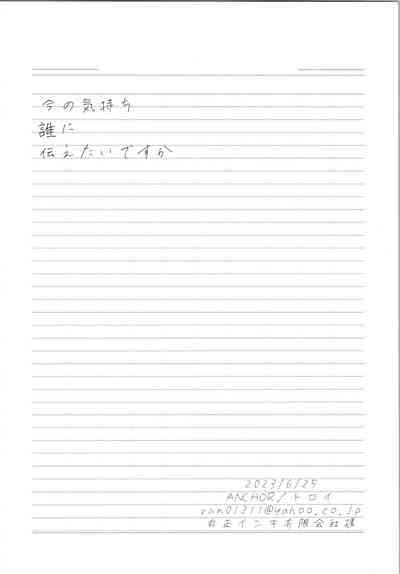 今の気持ち
誰に
伝えたいですか
2023/6/25
ANCHOR/トロイ
ran01311@yahoo.co.jp
有正インキ有限会社様